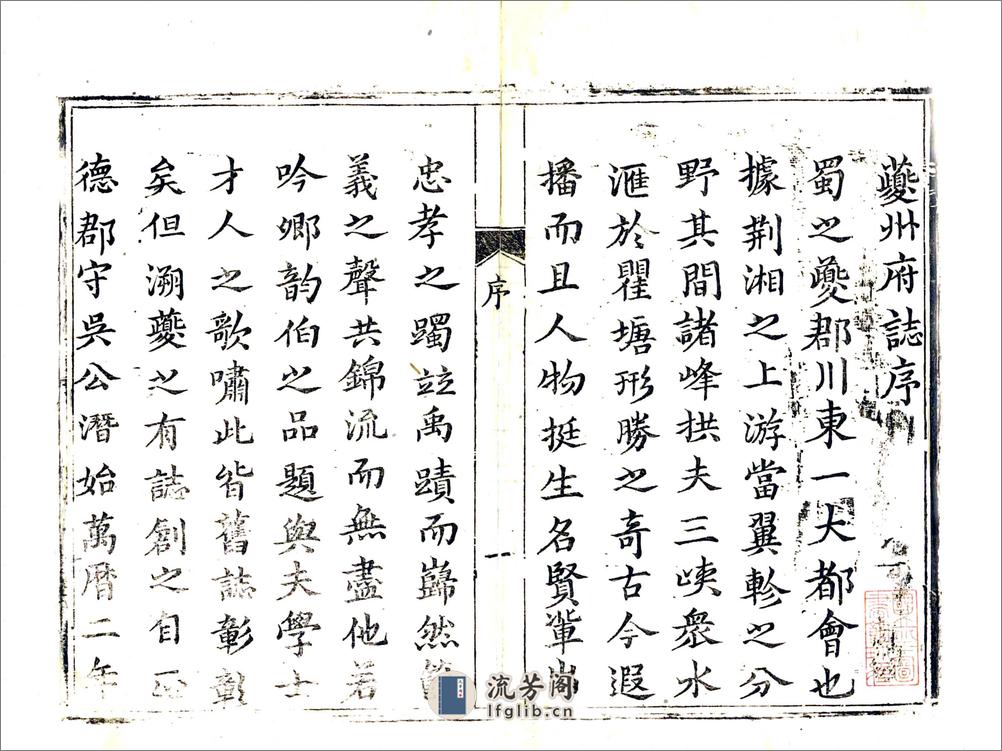 夔州府誌序
蜀之夔郡川東一大都會也
據荆湘之上游當翼軫之分
野其間諸峰拱夫三峽衆水
滙於瞿塘形勝之竒古今遐
播而且人物挺生名賢輩出
序
一
忠孝之躅竝禹蹟而巋然
義之聲共錦流而無盡他若
吟鄉韵伯之品題與夫學士
才人之歌嘯此皆舊誌彰彰
矣但溯夔之有誌創之自正
德郡守吳公潛始萬曆二年
流芳阁
lfglib.cn